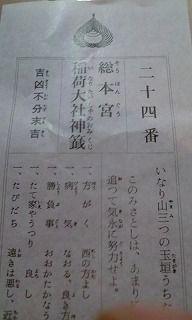 二十四番
総本宮
稲荷大社神籤
吉凶不分末吉
いなり山三つの玉垣うち
このみさとしは、あまり
追つて気永に努力せよ。
一、方がく 西の方よし
一、病気 なおる、良き
一、勝負事 おおかたかな
一、たて家やうつり 良し
一、たびだち 遠きは悪し、近